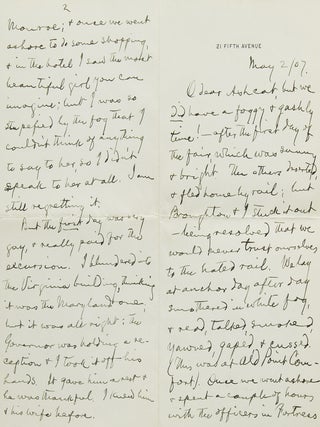 21 FIFTH AVENUE
May 2/07.
O dear Ashcat, but we
did have a foggy & gashly
time!—after the first day of
the fair, which was sunny
& bright. The others deserted
& fled home by rail; but
Broughton & I stuck it out
—being resolved that we
would never trust ourselves
to the hated rail. We lay
at anchor day after day
smothered in white fog,
& read, talked, smoked,
yawned, gaped & cussed.
(This was at Old Point Com-
fort). Once we went ashore
& spent a couple of hours
with the officers in Fortress
2
Monroe; & once we went
ashore to do some shopping,
& in the hotel I saw the most
beautiful girl you can
imagine; but I was so
stupefied by the fog that I
couldn't think of anything
to say to her, so I didn't
speak to her at all. I am
still regretting it.
But the first day was very
gay, & really paid for the
excursion. I blundered into
the Virginia building, thinking
it was the Maryland one,
but it was all right: the
Governor was holding a re-
ception & I took it off his
hands. It gave him a rest &
he was thankful. I knew him
& his wife before.